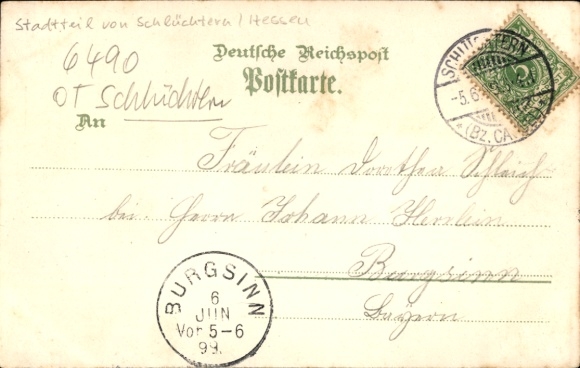 Stadtteil von Schlüchtern / Hessen
6490
OT Schlüchtern
Deutsche Reichspost
Postkarte.
SCHLÜCHTERN
-5.6
*(BZ. CA
An
Fräulein Dorothea Schleich
bei Herrn Johann Herrlein
Burgsinn
Bayern
BURGSINN
6
JUN
Vor 5-6
99.